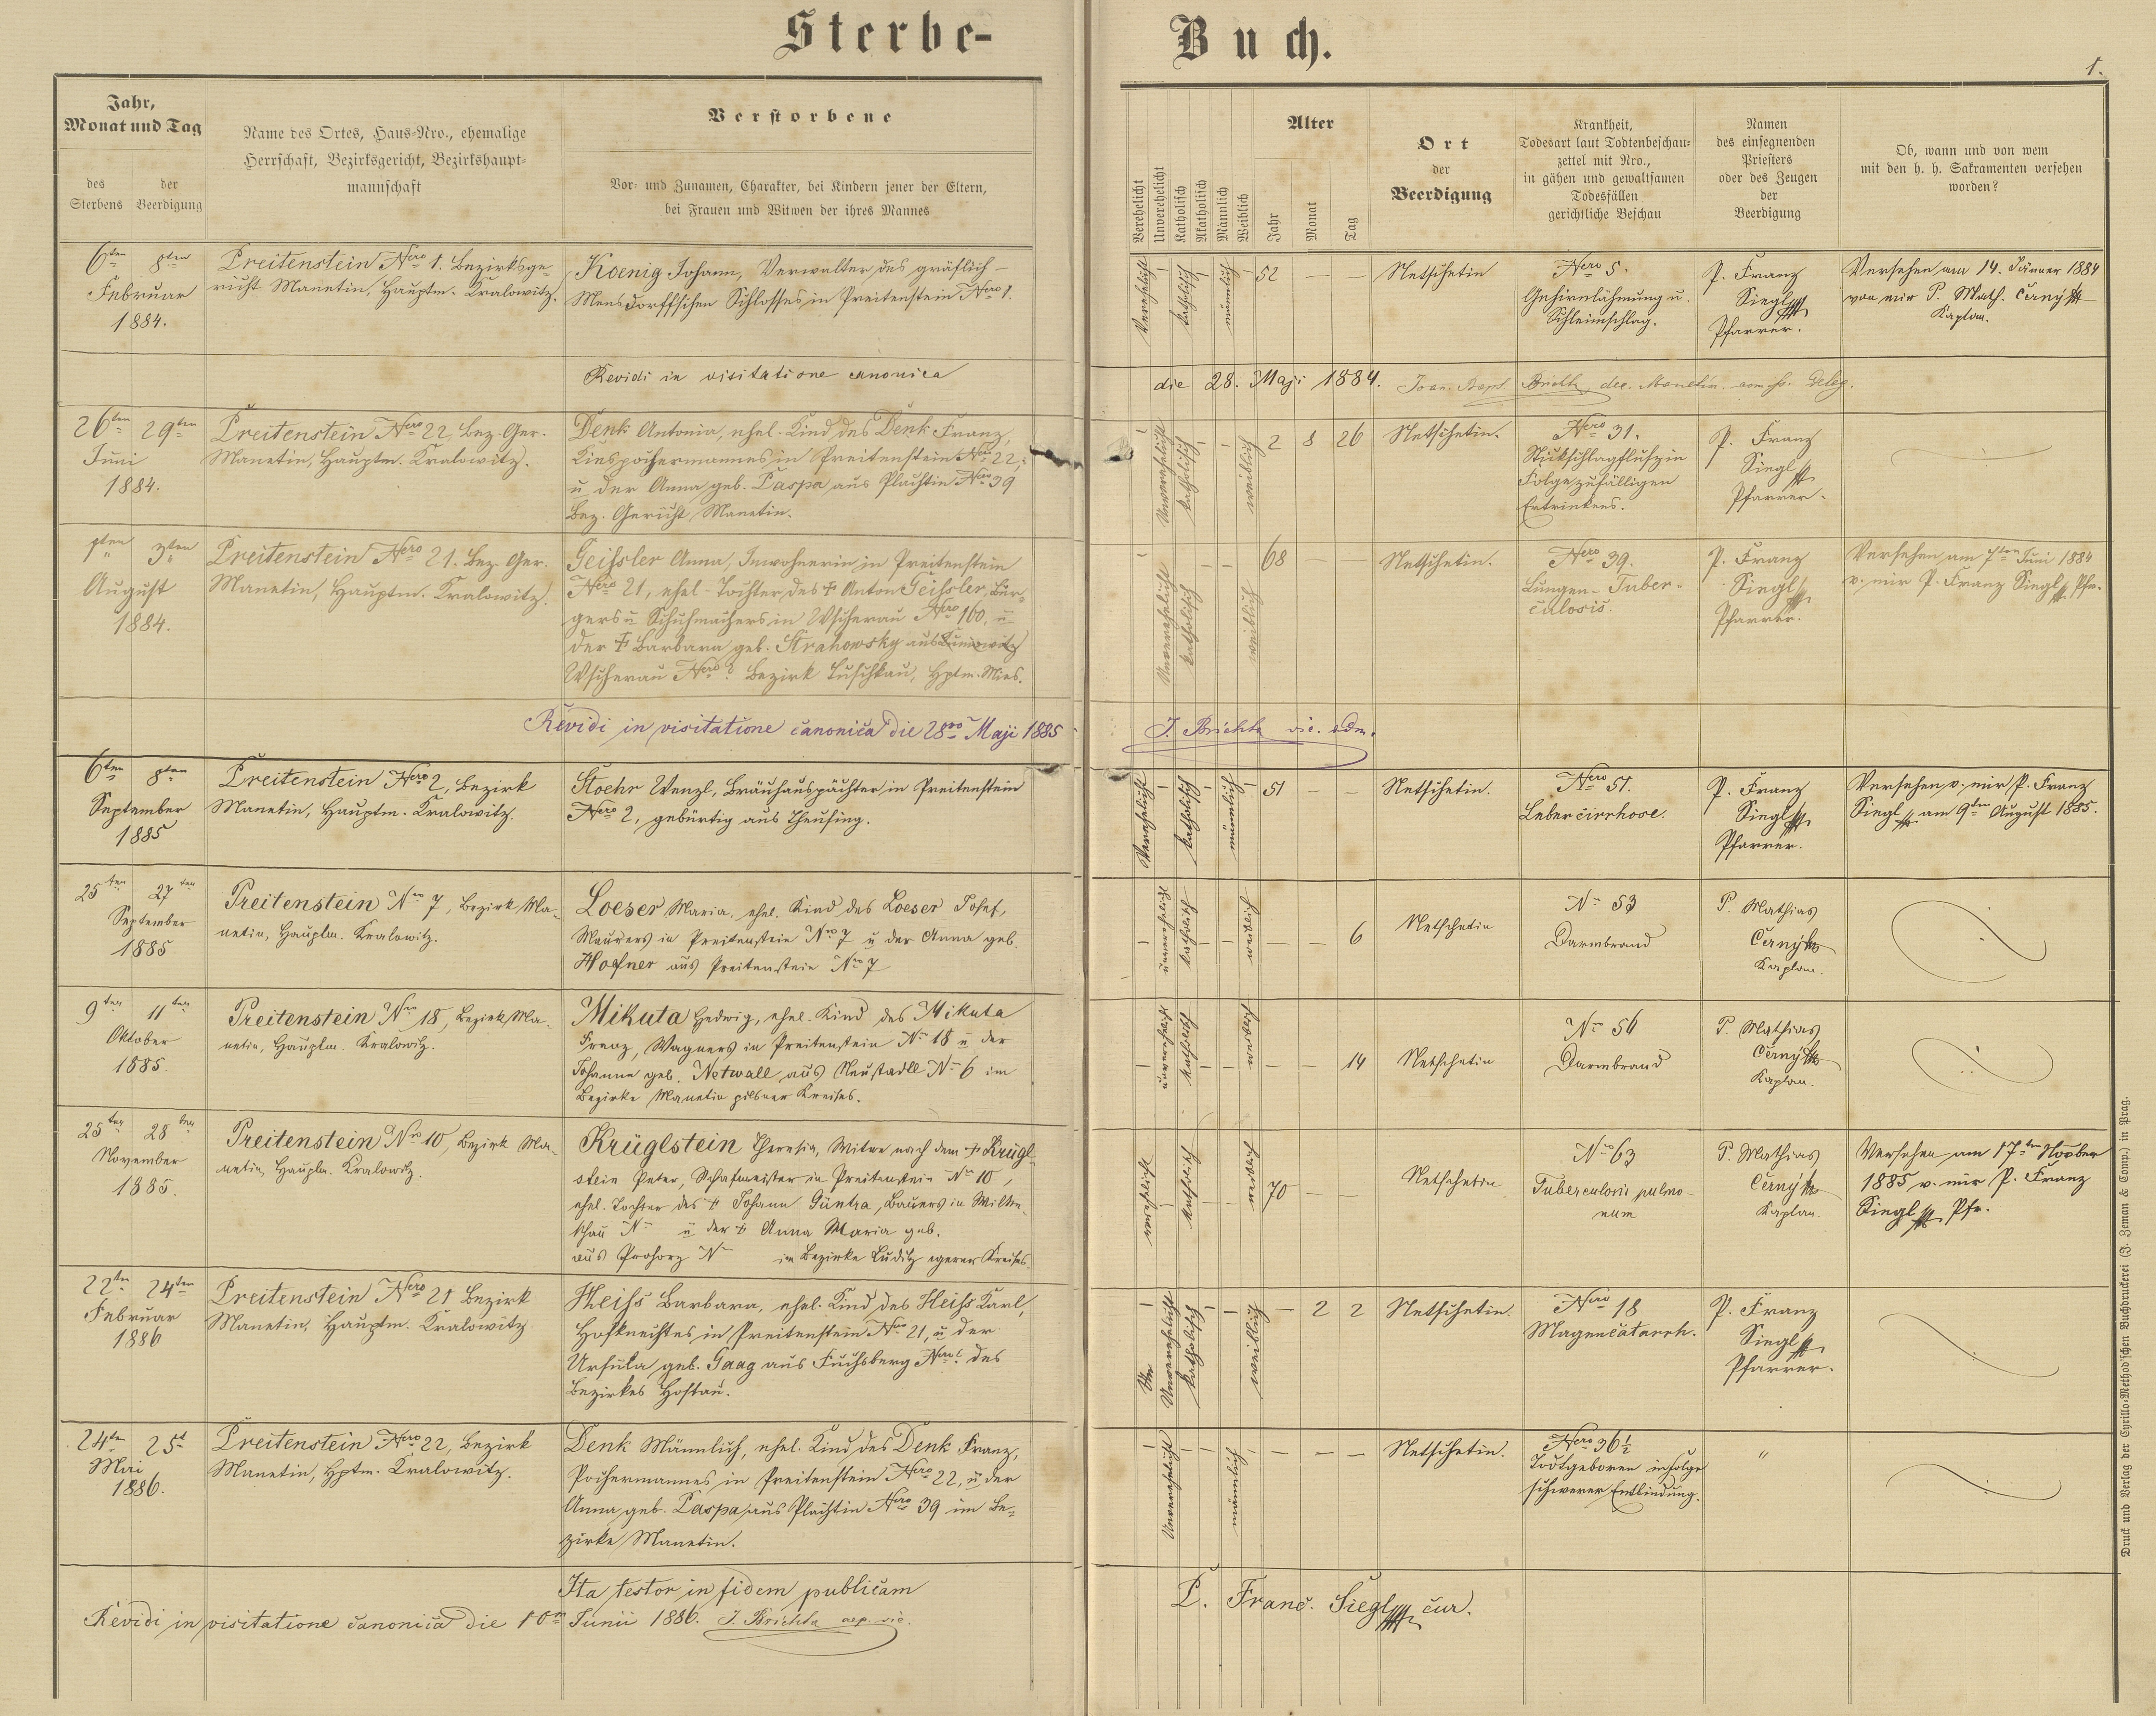 Sterbe-Buch.
1.
Jahr,
Monat und Tag
des Sterbens
der Beerdigung
Name des Ortes, Haus-Nro., ehemalige
Herrschaft, Bezirksgericht, Bezirkshaupt-
mannschaft
Verstorbene
Vor- und Zunamen, Charakter, bei Kindern jener der Eltern,
bei Frauen und Witwen der ihres Mannes
Verehelicht
Unverehelicht
Katholisch
Akatholisch
Männlich
Weiblich
Alter
Jahr
Monat
Tag
Ort
der
Beerdigung
Krankheit,
Todesart laut Todtenbeschau-
zettel mit Nro.,
in gähen und gewaltsamen
Todesfällen
gerichtliche Beschau
Namen
des einsegnenden
Priesters
oder des Zeugen
der
Beerdigung
Ob, wann und von wem
mit den h. h. Sakramenten versehen
worden?
6ten 8ten
Februar
1884.
Preitenstein Nero 1. Bezirksge-
richt Manetin, Hauptm. Kralowitz.
Koenig Johann, Verwalter des gräflich-
Mensdorffschen Schlosses in Preitenstein Nero 1.
Verehelicht
katholisch
männlich
52 — —
Netschetin
Nero 5.
Gehirnlähmung u.
Schleimschlag.
P. Franz
Siegl
Pfarrer.
Versehen am 14. Jänner 1884
von mir P. Math. Černý
Kaplan.
Revidi in visitatione canonica
die 28. Maji 1884.
26ten 29ten
Juni
1884.
Preitenstein Nero 22, Bez. Ger.
Manetin, Hauptm. Kralowitz.
Denk Antonia, ehel. Kind des Denk Franz,
Kiespochermannes in Preitenstein Nro 22,
u der Anna geb. Paspa aus Plachtin Nero 39
Bez. Gericht Manetin.
Unverehelicht
katholisch
weiblich
2 8 26
Netschetin.
Nero 31.
Stickschlagfluß in
Folge zufälligen
Ertrinkens.
P. Franz
Siegl
Pfarrer.
1ten 3ten
August
1884.
Preitenstein Nero 21. Bez. Ger.
Manetin, Hauptm. Kralowitz.
Geißler Anna, Inwohnerin in Preitenstein
Nero 21, ehel. Tochter des † Anton Geißler, Bür-
gers u Schuhmachers in Wscherau Nro 160, u
der † Barbara geb. Strahowsky aus
Wscherau Nero ? Bezirk Tuschkau, Hptm. Mies.
Unverehelicht
katholisch
weiblich
68 — —
Netschetin.
Nero 39.
Lungen-Tuber-
culosis.
P. Franz
Siegl
Pfarrer.
Versehen am 7ten Juni 1884
v. mir P. Franz Siegl Pfr.
Revidi in visitatione canonica die 28va Maji 1885
J. Brichta vic. adm.
6ten 8ten
September
1885
Preitenstein Nero 2, Bezirk
Manetin, Hauptm. Kralowitz.
Stoehr Wenzl, Bräuhauspächter in Preitenstein
Nero 2, gebürtig aus Theusing.
Verehelicht
katholisch
männlich
51 — —
Netschetin.
Nero 51.
Lebercirrhose.
P. Franz
Siegl
Pfarrer.
Versehen v. mir P. Franz
Siegl am 9ten August 1885.
25ten 27ten
September
1885
Preitenstein Nro 7, Bezirk Ma-
netin, Hauptm. Kralowitz.
Loeser Maria, ehel. Kind des Loeser Josef,
Maurers in Preitenstein Nro 7 u der Anna geb.
Hofner aus Preitenstein Nro 7
unverehelicht
katholisch
weiblich
— — 6
Netschetin
No 53
Darmbrand
P. Mathias
Černý
Kaplan.
9ten 11ten
Oktober
1885.
Preitenstein Nro 18, Bezirk Ma-
netin, Hauptm. Kralowitz.
Mikuta Hedwig, ehel. Kind des Mikuta
Franz, Wagners in Preitenstein No 18 u der
Johanna geb. Netwall aus Neustadtl No 6 im
Bezirke Manetin pilsner Kreises.
unverehelicht
katholisch
weiblich
— — 14
Netschetin
No 56
Darmbrand
P. Mathias
Černý
Kaplan.
25ten 28ten
November
1885.
Preitenstein Nro 10, Bezirk Ma-
netin, Hauptm. Kralowitz.
Krüglstein Theresia, Witwe nach dem † Krügl-
stein Peter, Schafmeister in Preitenstein No 10,
ehel. Tochter des † Johann Güntra, Bauers in Milkn-
tschau No u der † Anna Maria geb.
aus Prohorz No im Bezirke Luditz egerer Kreises.
verehelicht
katholisch
weiblich
70 —
Netschetin
No 63
Tuberculosis pulmo-
num
P. Mathias
Černý
Kaplan.
Versehen am 17ten Novber
1885 v. mir P. Franz
Siegl Pfr.
22ten 24ten
Februar
1886
Preitenstein Nero 21 Bezirk
Manetin, Hauptm. Kralowitz
Heiß Barbara, ehel. Kind des Heiß Karl,
Hofknechtes in Preitenstein Nro 21, u der
Ursula geb. Gaag aus Fuchsberg Nro ? des
Bezirkes Hostau.
Unverehelicht
katholisch
weiblich
— 2 2
Netschetin.
Nero 18
Magencatarrh.
P. Franz
Siegl
Pfarrer.
24ten 25t
Mai
1886.
Preitenstein Nero 22, Bezirk
Manetin, Hptm. Kralowitz.
Denk Männlich, ehel. Kind des Denk Franz,
Pochermannes in Preitenstein Nero 22, u der
Anna geb. Paspa aus Plachtin Nero 39 im Be-
zirke Manetin.
Unverehelicht
männlich
— — —
Netschetin.
Nero 36½
Todtgeboren infolge
schwerer Entbindung.
"
Ita testor in fidem publicam
P. Franc. Siegl cur.
Revidi in visitatione canonica die 10ma Junii 1886. J. Brichta aep. vic.
Druck und Verlag der Cyrillo-Method'schen Buchdruckerei (J. Zeman & Comp.) in Prag.